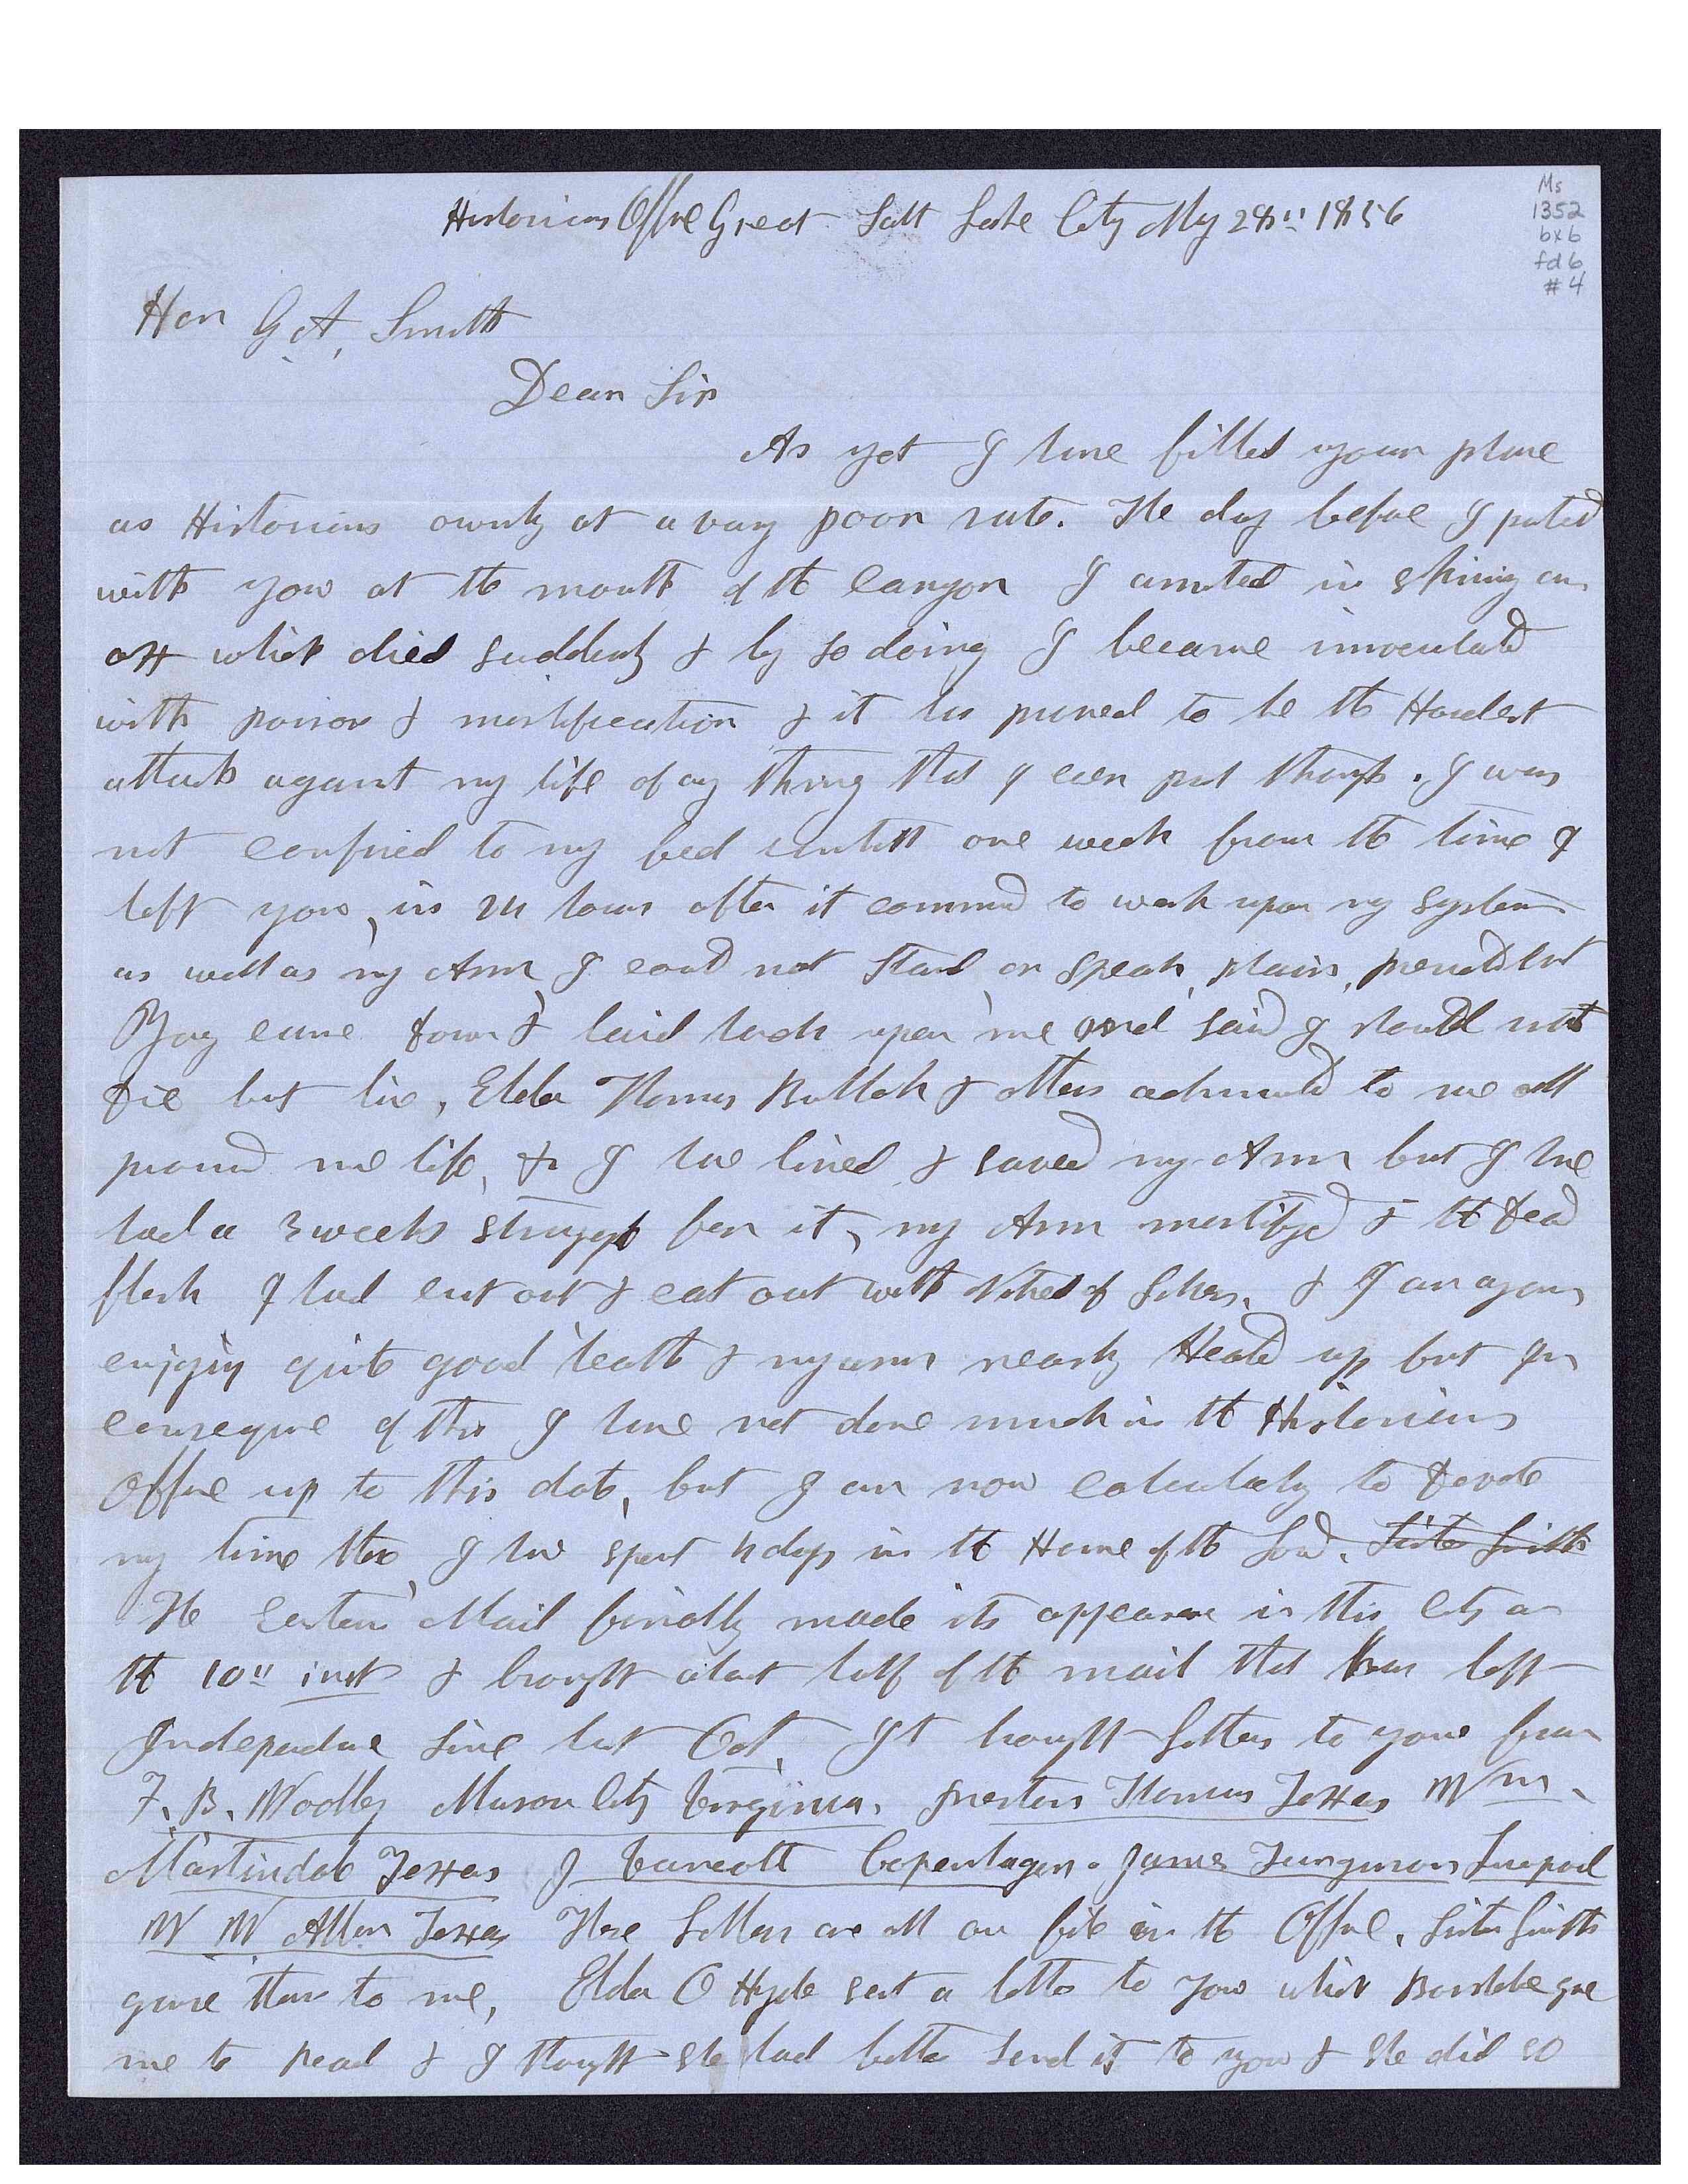 Historians Office Great Salt Lake City May 28" 1856
Ms
1352
bx 6
fd 6
# 4
Hon G A, Smith
Dear Sir
As yet I have filled your place
as Historians ownly at a vary poor rate. The day before I parted
with you at the mouth of the Canyon I assisted in skining an
ox which died suddenly & by so doing I became innoculated
with poison & mortification & it has proved to be the Hardest
attack against my life of any thing that I ever past through. I was
not confined to my bed untill one week from the time I
left you, in 24 hours after it commenced to work upon my system
as well as my Arm I could not stand or speak plain, President
Young came down & laid hands upon me and said I should not
die but live, Elder Thomas Bullock & others administered to me all
promised me life, & I have lived & saved my Arm but I have
had a 3 weeks struggle for it, my Arm mortifyed & the dead
flesh I had cut out & eat out with Nitrate of Silver, & I am again
enjoying quite good health & my arm nearly Heald up but In
consequence of this I have not done much in the Historians
Office up to this date, but I am now calculating to devote
my time there I have spent 4 days in the House of the Lord. Sister Smith
The Eastern Mail finally made its appearance in this City on
the 10" inst & brought about half of the mail that has left
Independance since last Oct. It brought Letters to you from
F. B. Woolley Mason City Virginia. Preston Thomas Texas Wm.
Martindale Texas J Vancott Copenhagen. James Furguson Liverpool
W W Allen Texas These Letters are all on file in the Office. Sister Smith
gave them to me, Elder O Hyde sent a letter to you which Barsheba gave
me to read & I thought she had better send it to you & she did so